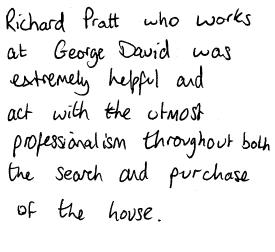 Richard Pratt who works
at George David was
extremely helpful and
act with the utmost
professionalism throughout both
the search and purchase
of the house.